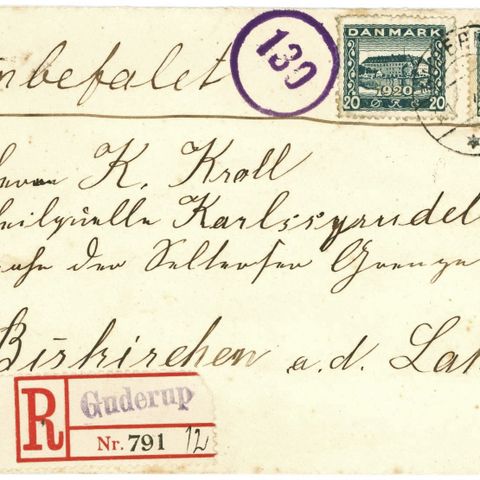 nbefalet
130
DANMARK
1920
20 ØRE 20
Herrn K. Kroll
Heilquelle Karlssprudel
nahe der Selterser Grenze
Biskirchen a.d. Lah
R Guderup
Nr. 791 12